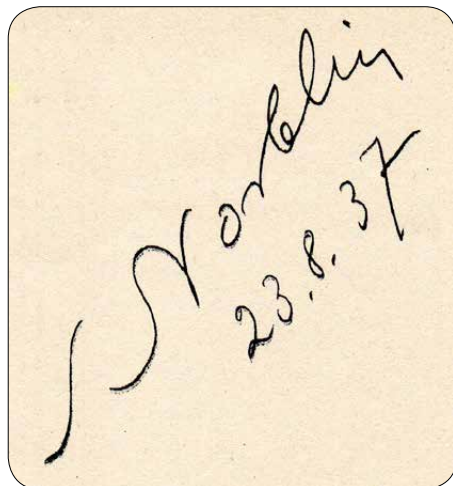 Norblin
23.8.37